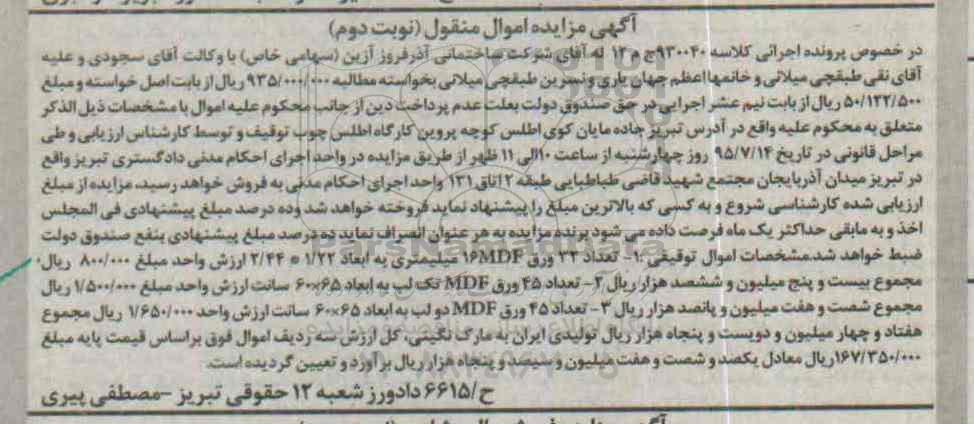 آگهی مزایده اموال منقول (نوبت دوم)
در خصوص پرونده اجرائی کلاسه ۹۳۰۰۴۰ج م ۱۲ له آقای شرکت ساختمانی آذرفروز آژین (سهامی خاص) با وکالت آقای سجودی و علیه
آقای نقی طبقچی میلانی و خانمها اعظم جهان یاری و نسرین طبقچی میلانی بخواسته مطالبه ۹۳۵/۰۰۰/۰۰۰ ریال از بابت اصل خواسته و مبلغ
۵۰/۱۲۲/۵۰۰ ریال از بابت نیم عشر اجرایی در حق صندوق دولت بعلت عدم پرداخت دین از جانب محکوم علیه اموال با مشخصات ذیل الذکر
متعلق به محکوم علیه واقع در آدرس تبریز جاده مایان کوی اطلس کوچه پروین کارگاه اطلس چوب توقیف و توسط کارشناس ارزیابی و طی
مراحل قانونی در تاریخ ۹۵/۷/۱۴ روز چهارشنبه از ساعت ۱۰الی ۱۱ ظهر از طریق مزایده در واحد اجرای احکام مدنی دادگستری تبریز واقع
در تبریز میدان آذربایجان مجتمع شهید قاضی طباطبایی طبقه ۲ اتاق ۱۳۱ واحد اجرای احکام مدنی به فروش خواهد رسید. مزایده از مبلغ
ارزیابی شده کارشناسی شروع و به کسی که بالاترین مبلغ را پیشنهاد نماید فروخته خواهد شد وده درصد مبلغ پیشنهادی فی المجلس
اخذ و به مابقی حداکثر یک ماه فرصت داده می شود برنده مزایده به هر عنوان انصراف نماید ده درصد مبلغ پیشنهادی بنفع صندوق دولت
ضبط خواهد شد.مشخصات اموال توقیفی :۱- تعداد ۳۲ ورق ۱۶MDF میلیمتری به ابعاد ۱/۲۲ * ۲/۴۴ ارزش واحد مبلغ ۸۰۰/۰۰۰ ریال
مجموع بیست و پنج میلیون و ششصد هزار ریال ۲- تعداد ۴۵ ورق MDF تک لب به ابعاد ۶۵×۶۰ سانت ارزش واحد مبلغ ۱/۵۰۰/۰۰۰ ریال
مجموع شصت و هفت میلیون و پانصد هزار ریال ۳- تعداد ۴۵ ورق MDF دو لب به ابعاد ۶۵×۶۰ سانت ارزش واحد ۱/۶۵۰/۰۰۰ ریال مجموع
هفتاد و چهار میلیون و دویست و پنجاه هزار ریال تولیدی ایران به مارک نگینی، کل ارزش سه ردیف اموال فوق براساس قیمت پایه مبلغ
۱۶۷/۳۵۰/۰۰۰ریال معادل یکصد و شصت و هفت میلیون و سیصد و پنجاه هزار ریال برآورد و تعیین گردیده است.
ح/۶۶۱۵ دادورز شعبه ۱۲ حقوقی تبریز –مصطفی پیری
ParsNamadData